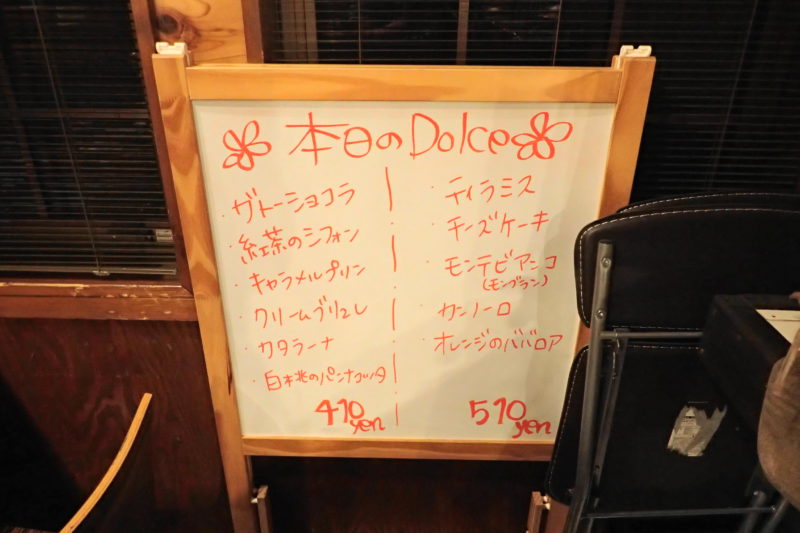 本日のDolce
・ガトーショコラ
・紅茶のシフォン
・キャラメルプリン
・クリームブリュレ
・カタラーナ
・白桃のパンナコッタ
410yen
・ティラミス
・チーズケーキ
・モンテビアンコ
(モンブラン)
・カンノーロ
・オレンジのババロア
510yen